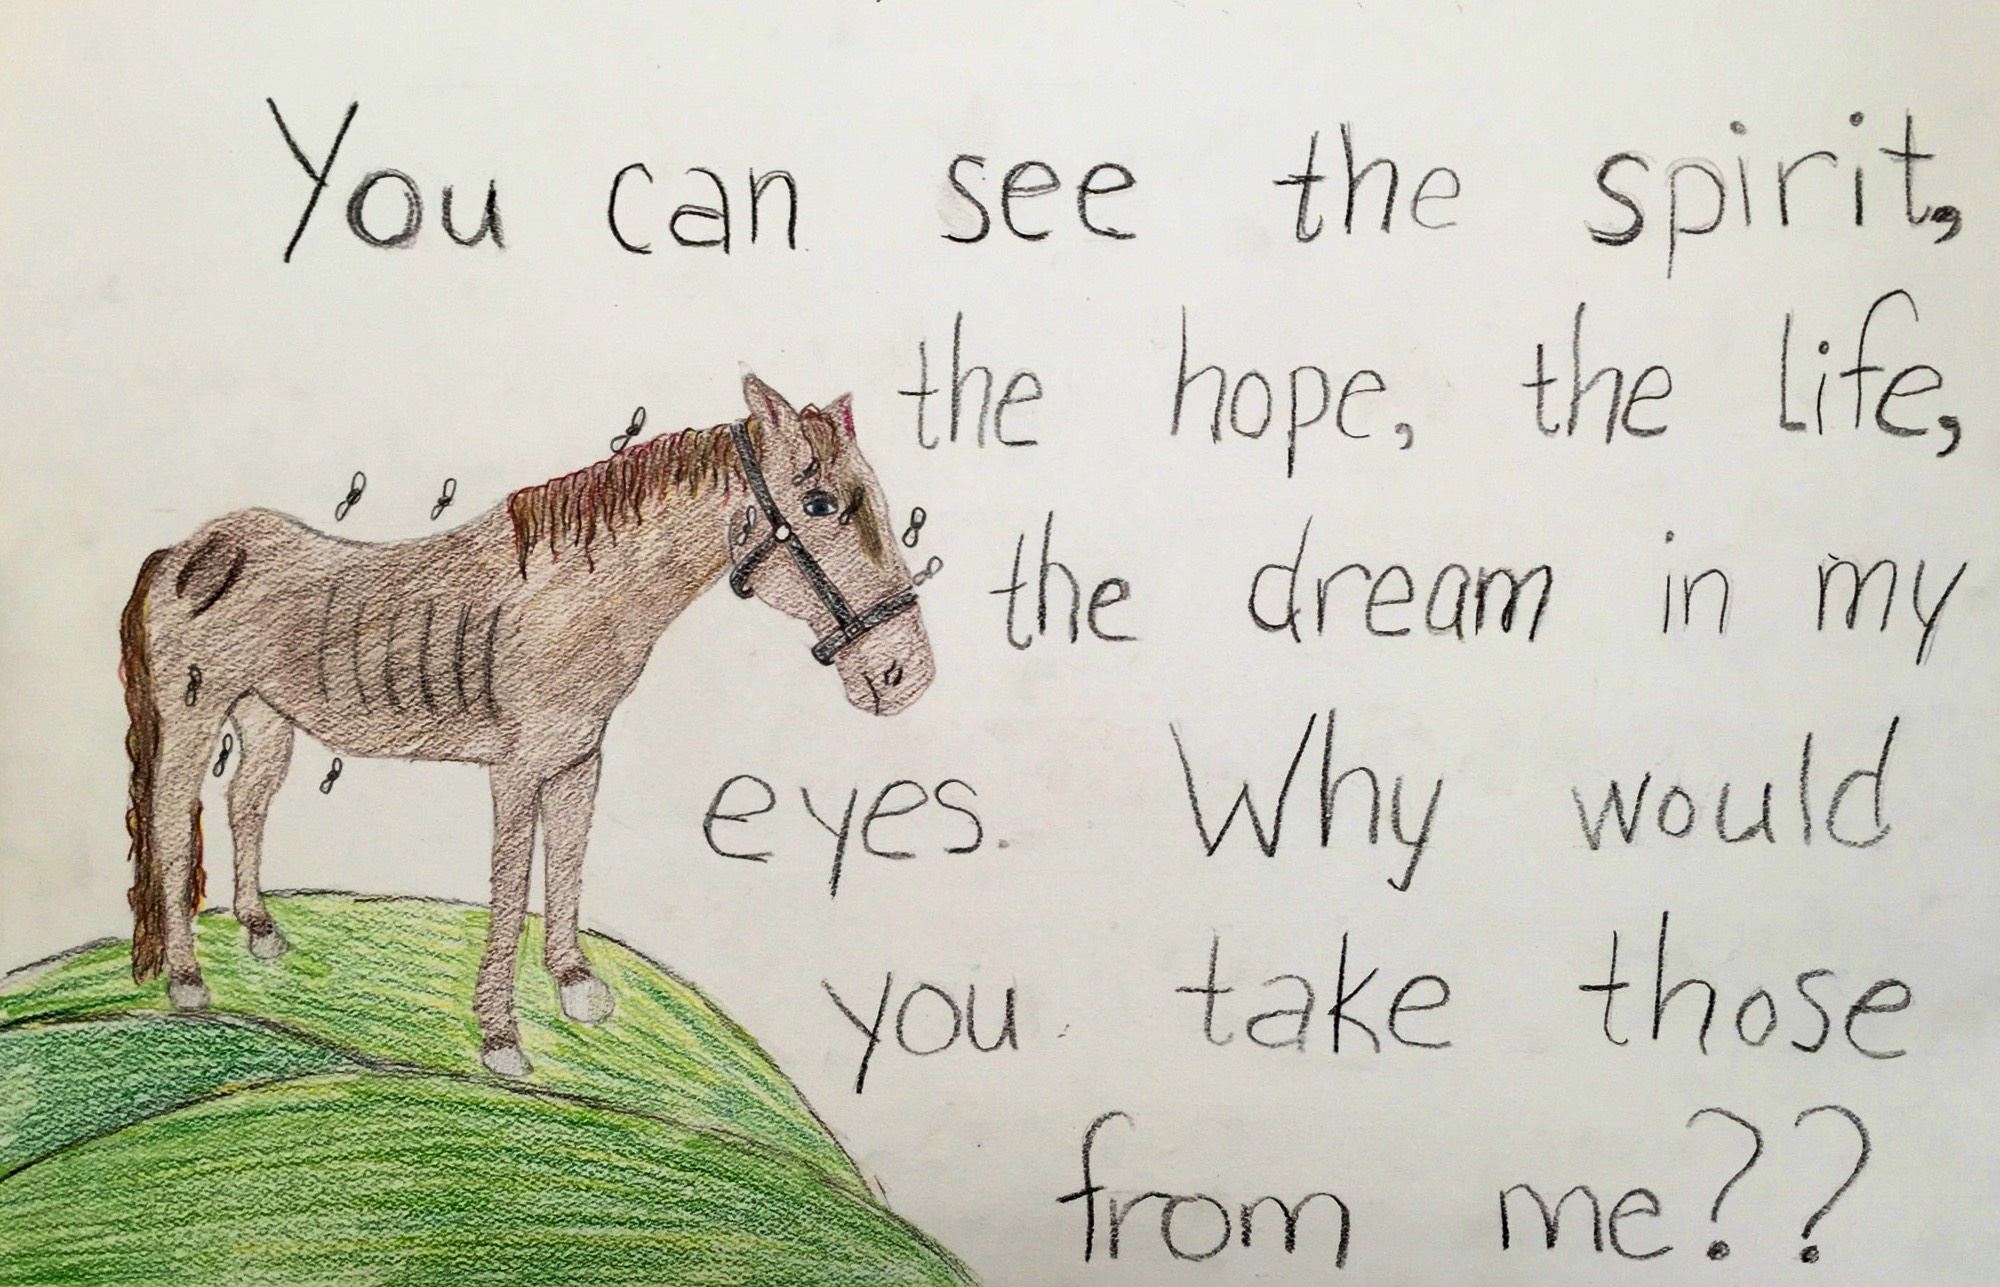 You can see the spirit,
the hope, the life,
the dream in my
eyes. Why would
you take those
from me??